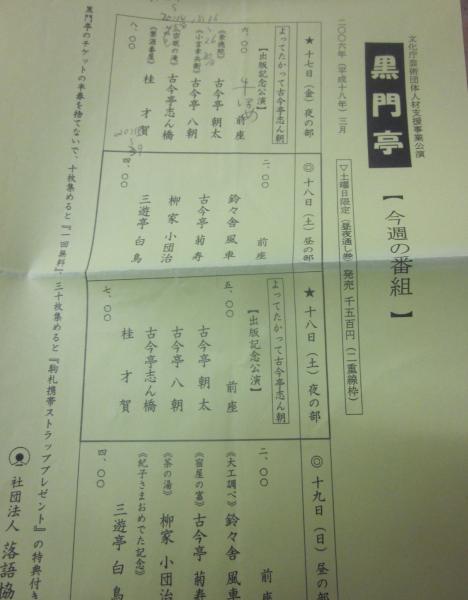 文化庁芸術団体人材支援事業公演
黒門亭
【今週の番組】
二〇〇六年(平成十八年)三月
▽土曜日限定(昼夜通し券)発売 千五百円(二重線枠)
★十七日(金)夜の部
よってたかって古今亭志ん朝
【出版記念公演】
六、〇〇 前座
古今亭 朝太
古今亭 八朝
古今亭志ん橋
桂 才賀
八、〇〇
◎十八日(土)昼の部
二、〇〇 前座
鈴々舎 風車
古今亭 菊寿
柳家 小団治
三遊亭 白鳥
四、〇〇
★十八日(土)夜の部
よってたかって古今亭志ん朝
【出版記念公演】
五、〇〇 前座
古今亭 朝太
古今亭 八朝
古今亭志ん橋
桂 才賀
七、〇〇
◎十九日(日)昼の部
二、〇〇 前座
《大工調べ》鈴々舎 風車
《宿屋の富》古今亭 菊寿
《茶の湯》柳家 小団治
《紀子さまおめでた記念》
三遊亭 白鳥
四、〇〇
黒門亭のチケットの半券を捨てないで、十枚集めると『一回無料』、三十枚集めると『駒札携帯ストラッププレゼント』の特典付き
社団法人 落語協